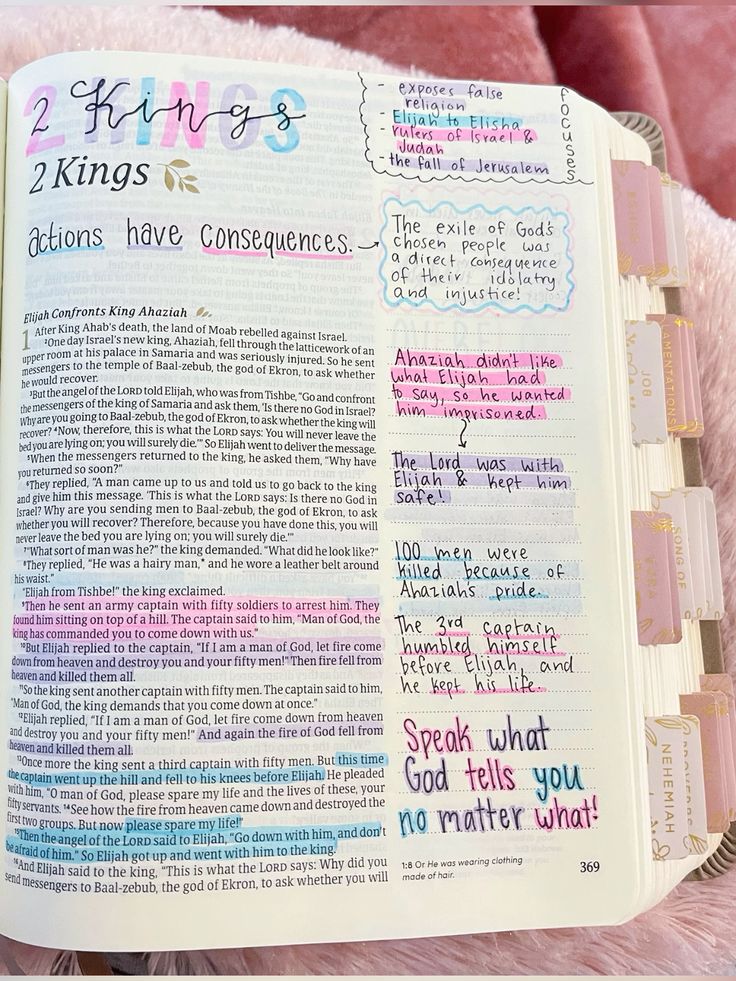 2 Kings
2 KINGS
2 Kings
- exposes false
religion
- Elijah to Elisha
- rulers of Israel &
Judah
- the fall of Jerusalem
focuses
actions have consequences.
The exile of God's
chosen people was
a direct consequence
of their idolatry
and injustice!
Elijah Confronts King Ahaziah
1 After King Ahab's death, the land of Moab rebelled against Israel.
2One day Israel's new king, Ahaziah, fell through the latticework of an
upper room at his palace in Samaria and was seriously injured. So he sent
messengers to the temple of Baal-zebub, the god of Ekron, to ask whether
he would recover.
3But the angel of the LORD told Elijah, who was from Tishbe, “Go and confront
the messengers of the king of Samaria and ask them, ‘Is there no God in Israel?
Why are you going to Baal-zebub, the god of Ekron, to ask whether the king will
recover? 4Now, therefore, this is what the LORD says: You will never leave the
bed you are lying on; you will surely die.’” So Elijah went to deliver the message.
5When the messengers returned to the king, he asked them, “Why have
you returned so soon?”
6They replied, “A man came up to us and told us to go back to the king
and give him this message. ‘This is what the LORD says: Is there no God in
Israel? Why are you sending men to Baal-zebub, the god of Ekron, to ask
whether you will recover? Therefore, because you have done this, you will
never leave the bed you are lying on; you will surely die.’”
7“What sort of man was he?” the king demanded. “What did he look like?”
8They replied, “He was a hairy man,* and he wore a leather belt around
his waist.”
“Elijah from Tishbe!” the king exclaimed.
9Then he sent an army captain with fifty soldiers to arrest him. They
found him sitting on top of a hill. The captain said to him, “Man of God, the
king has commanded you to come down with us.”
10But Elijah replied to the captain, “If I am a man of God, let fire come
down from heaven and destroy you and your fifty men!” Then fire fell from
heaven and killed them all.
11So the king sent another captain with fifty men. The captain said to him,
“Man of God, the king demands that you come down at once.”
12Elijah replied, “If I am a man of God, let fire come down from heaven
and destroy you and your fifty men!” And again the fire of God fell from
heaven and killed them all.
13Once more the king sent a third captain with fifty men. But this time
the captain went up the hill and fell to his knees before Elijah. He pleaded
with him, “O man of God, please spare my life and the lives of these, your
fifty servants. 14See how the fire from heaven came down and destroyed the
first two groups. But now please spare my life!”
15Then the angel of the LORD said to Elijah, “Go down with him, and don't
be afraid of him.” So Elijah got up and went with him to the king.
16And Elijah said to the king, “This is what the LORD says: Why did you
send messengers to Baal-zebub, the god of Ekron, to ask whether you will
Ahaziah didn't like
what Elijah had
to say, so he wanted
him imprisoned.
The Lord was with
Elijah & kept him
safe!
100 men were
killed because of
Ahaziah's pride.
The 3rd captain
humbled himself
before Elijah, and
he kept his life.
Speak what
God tells you
no matter what!
1:8 Or He was wearing clothing
made of hair.
369
ESTHER
JOB
LAMENTATIONS
EZRA
SONG OF
NEHEMIAH
PROVERBS